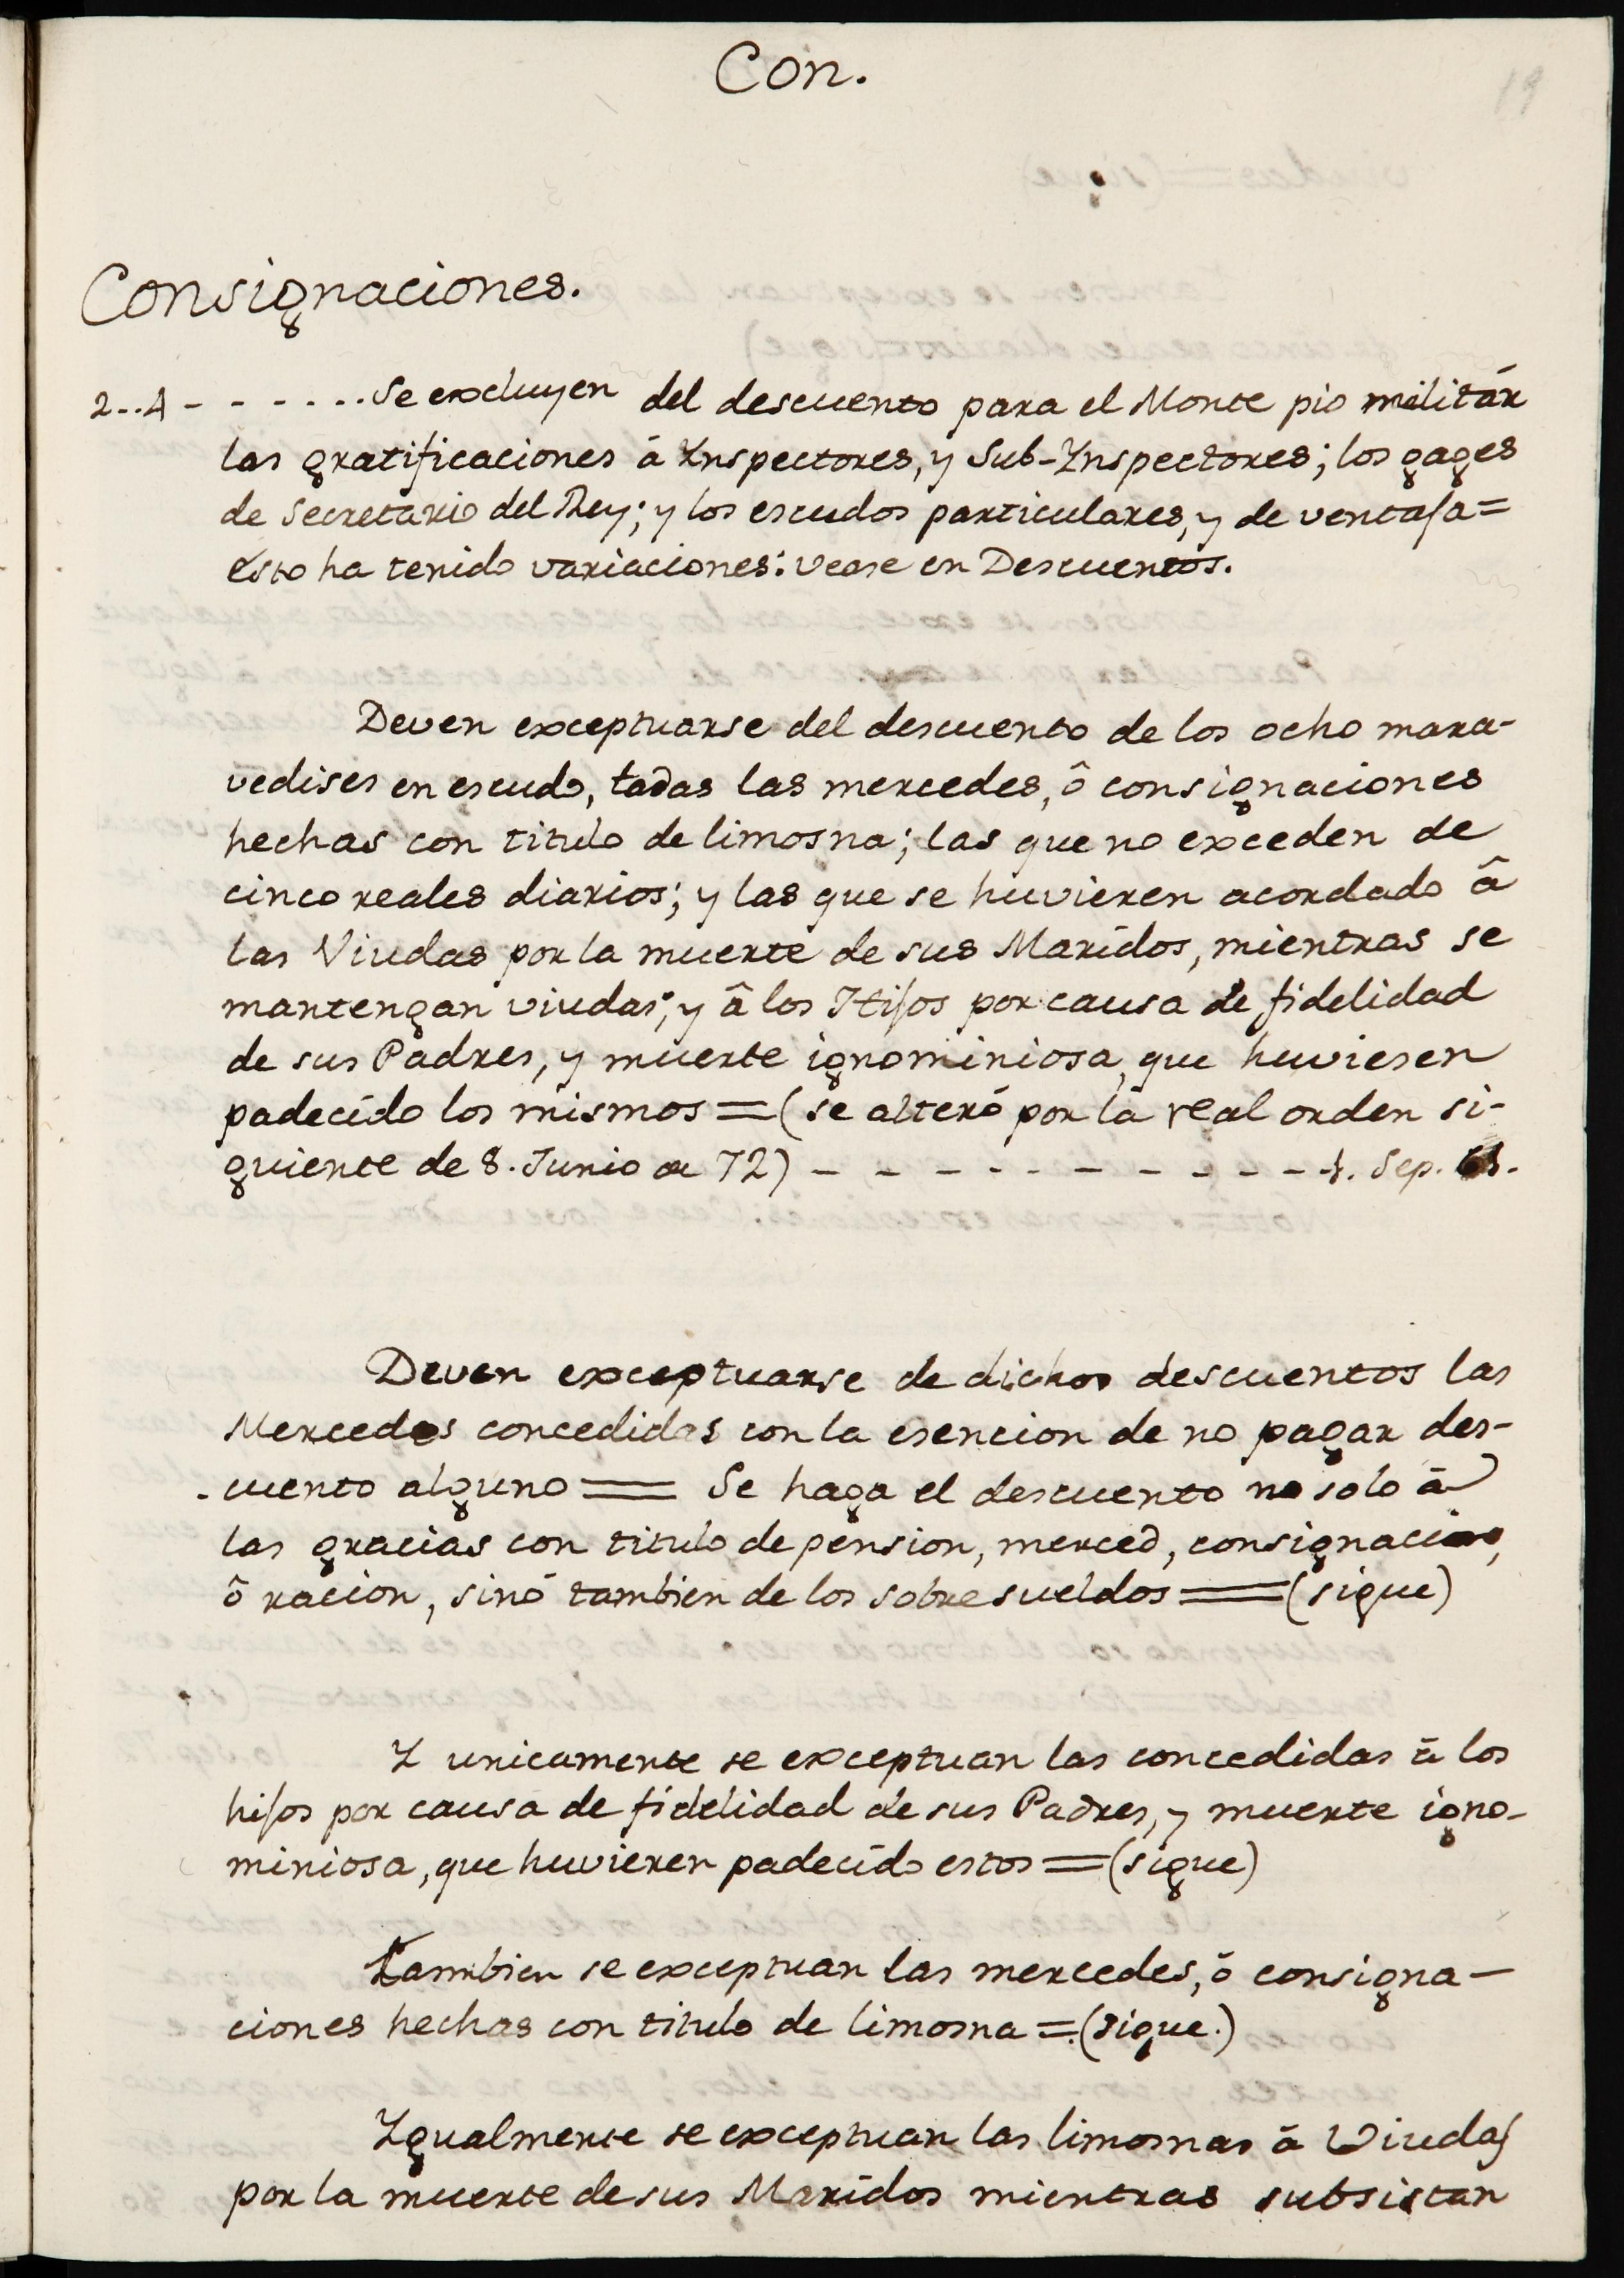 Con.
19
Consignaciones.
2..4 - - - . . . . Se excluyen del descuento para el Monte pio militár
las gratificaciones á Ynspectores, y Sub-Ynspectores; los gages
de Secretario del Rey; y los escudos particulares, y de ventaja =
esto ha tenido variaciones: vease en Descuentos.
Deven exceptuarse del descuento de los ocho mara-
vedises en escudo, todas las mercedes, ô consignaciones
hechas con titulo de limosna; las que no exceden de
cinco reales diarios; y las que se huvieren acordado â
las Viudas por la muerte de sus Maridos, mientras se
mantengan viudas; y â los Hijos por causa de fidelidad
de sus Padres, y muerte ignominiosa, que huviesen
padecído los mismos = (se alteró por la real orden si-
guiente de 8. Junio de 72) - - - - - - - - - - Sep.
Deven exceptuarse de dichos descuentos las
Mercedes concedidas con la esencion de no pagar des-
cuento alguno = Se haga el descuento no solo á
las gracias con titulo de pension, merced, consignacion,
ô racion, sinó tambien de los sobresueldos = (sigue)
Y unicamente se exceptuan las concedidas á los
hijos por causa de fidelidad de sus Padres, y muerte igno-
miniosa, que huvieren padecído estos = (sigue)
Tambien se exceptuan las mercedes, ó consigna-
ciones hechas con titulo de limosna = (sigue.)
Ygualmente se exceptuan las limosnas á Viudas
por la muerte de sus Marídos mientras subsistan